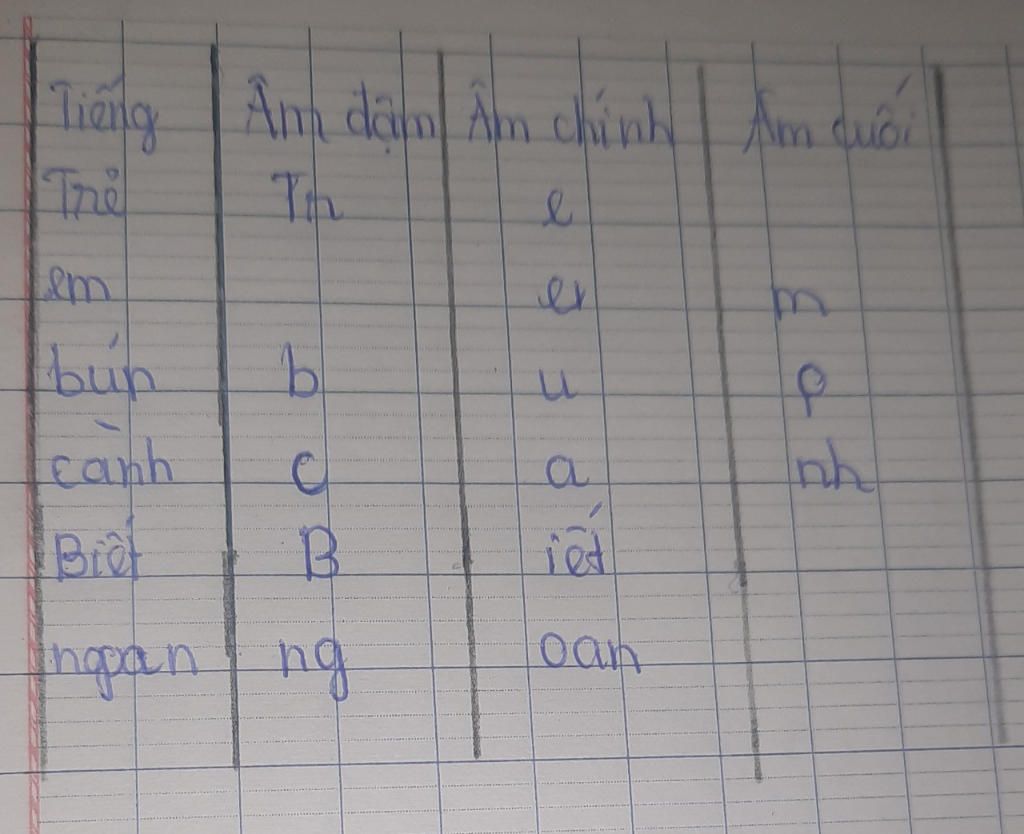 Tiếng Âm dậm Âm chính Âm cuối
Trẻ Tr e
em e m
búp b u p
cành c a nh
Biết B iết
ngoan ng oan